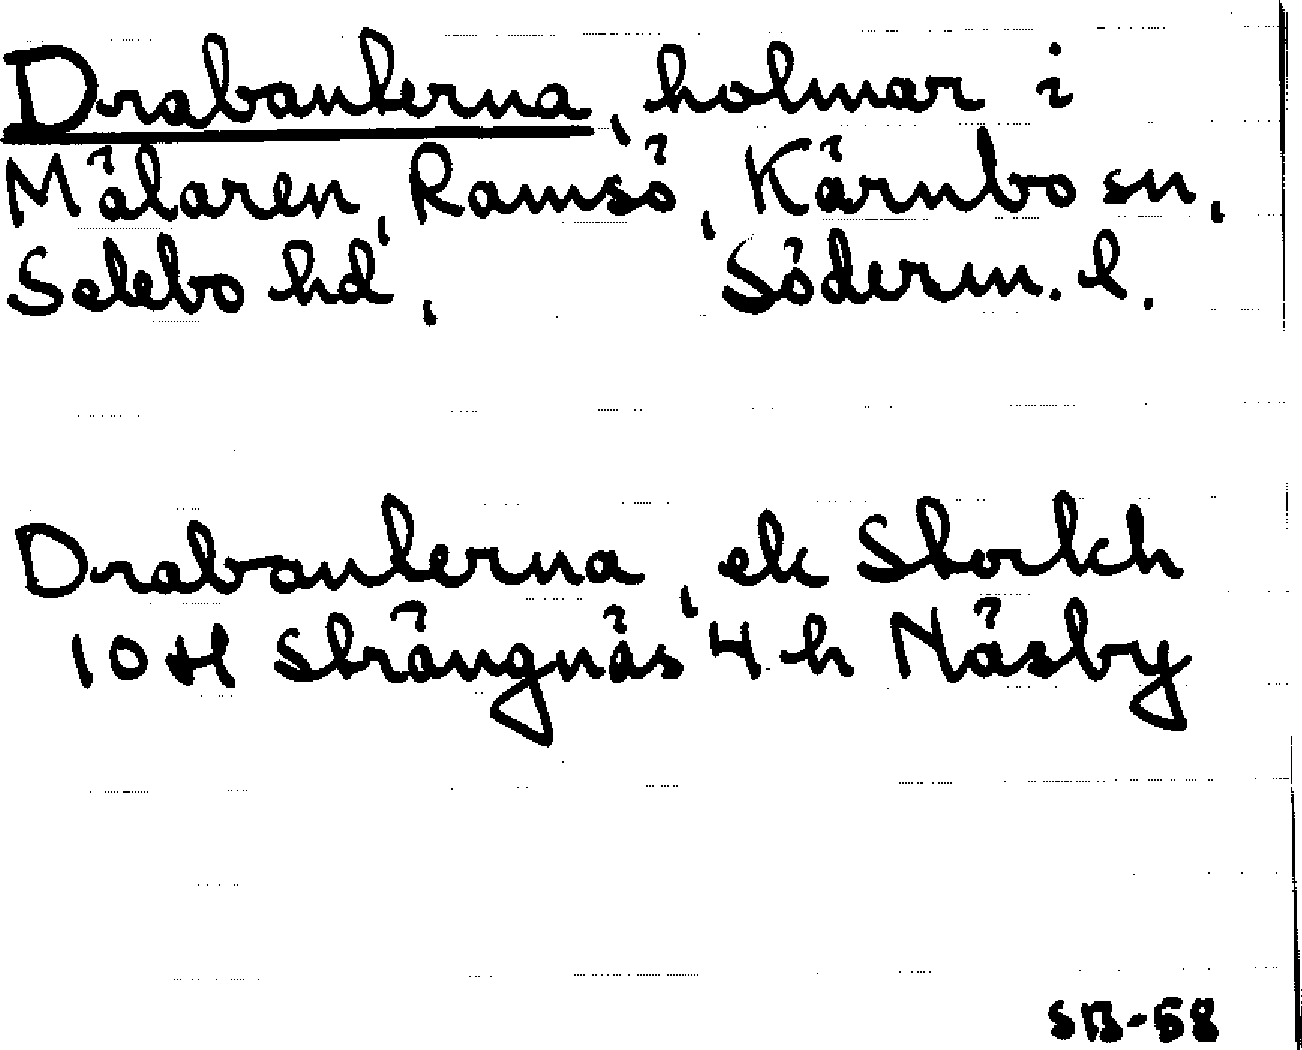 Drabanterna, holmar i
Mälaren, Ramsö, Kärnbo sn,
Selebo hd, Söderm. l.
Drabanterna, ek Storkh
10 H Strängnäs 4 h Näsby
SB-58